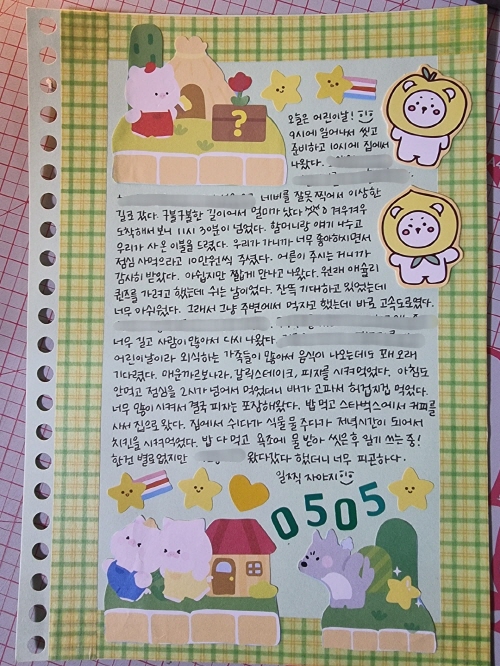 오늘은 어린이날!
9시에 일어나서 씻고
준비하고 10시에 집에서
나왔다.
네비를 잘못 찍어서 이상한
길로 갔다. 구불구불한 길이어서 멀미가 났다 겨우겨우
도착해서 보니 11시 30분이 넘었다. 할머니랑 얘기 나누고
우리가 사온 이불을 드렸다. 우리가 가니까 너무 좋아하시면서
점심 사먹으라고 10만원씩 주셨다. 어른이 주시는 거니까
감사히 받았다. 아쉽지만 짧게 만나고 나왔다. 원래 애슐리
퀸즈를 가려고 했는데 쉬는 날이었다. 잔뜩 기대하고 있었는데
너무 아쉬웠다. 그래서 그냥 주변에서 먹자고 했는데 바로 고속도로였다.
너무 길고 사람이 많아서 다시 나왔다
어린이날이라 외식하는 가족들이 많아서 음식이 나오는데도 꽤 오래
기다렸다. 매운까르보나라, 갈릭스테이크, 피자를 시켜먹었다. 아침도
안먹고 점심을 2시가 넘어서 먹었더니 배가 고파서 허겁지겁 먹었다.
너무 많이 시켜서 결국 피자는 포장해왔다. 밥 먹고 스타벅스에서 커피를
사서 집으로 왔다. 집에서 쉬다가 식물 물 주다가 저녁시간이 되어서
치킨을 시켜먹었다. 밥 다 먹고 욕조에 물 받아 씻은 후 일기 쓰는 중!
한건 별로 없지만 왔다갔다 했더니 너무 피곤하다.
일찍 자야지
?
0505